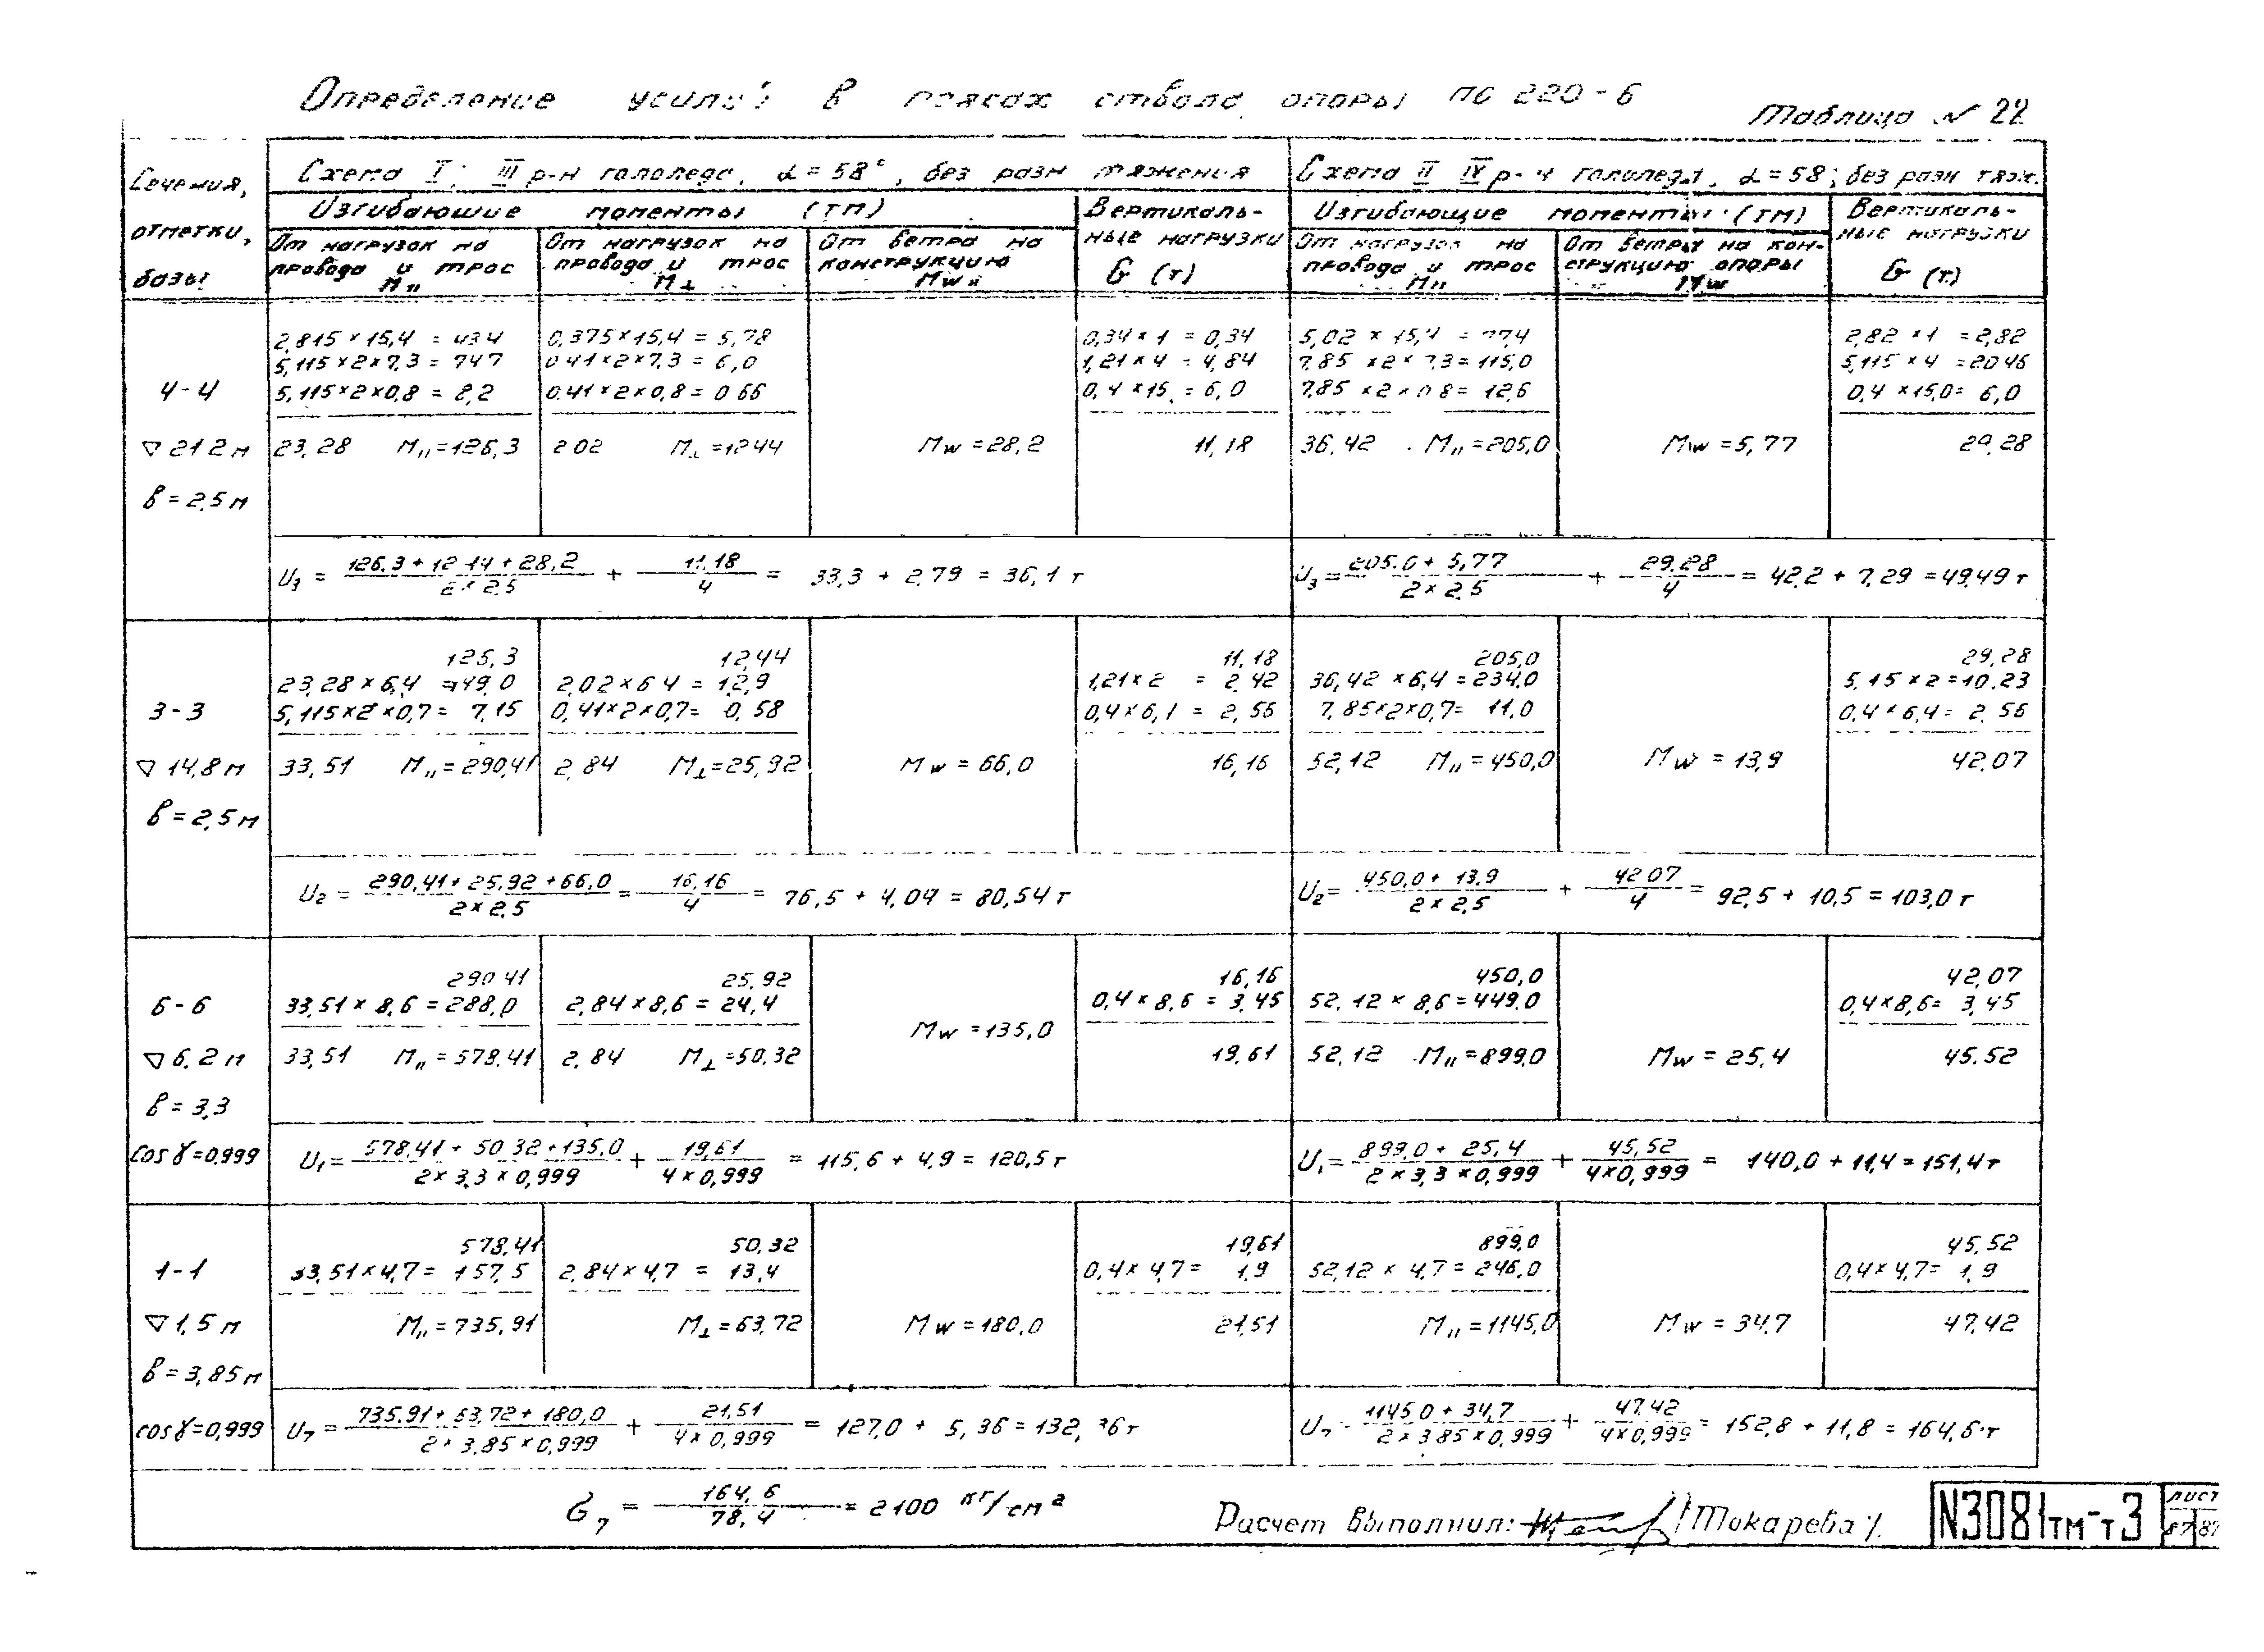 Определение усилий в поясах ствола опоры ПС 220-6
Таблица № 22
Сечения, отметки, базы
Схема I; III р-н гололеда, α = 58°, без разн тяжения
Схема II IV р-н гололеда, α = 58; без разн тяж.
Изгибающие моменты (тм)
Вертикаль-
ные нагрузки
G (т)
Изгибающие моменты (тм)
Вертикаль-
ные нагрузки
G (т)
От нагрузок на
провода и трос
M„
От нагрузок на
провода и трос
M⊥
От ветра на
конструкцию
Mw„
От нагрузок на
провода и трос
M„
От ветра на кон-
струкцию опоры
Mw
4-4
▽ 21 2 м
в = 2,5 м
2,815 × 15,4 = 43 4
5,115×2×7,3 = 74 7
5,115×2×0,8 = 8,2
23,28 M„=126,3
0,375×15,4 = 5,78
0 41×2×7,3 = 6,0
0,41×2×0,8 = 0 66
2 02 M⊥=12 44
Mw =28,2
0,34 × 1 = 0,34
1,21 × 4 = 4,84
0,4 ×15, = 6,0
11,18
5,02 × 15,4 = 77,4
7,85 ×2× 7,3=115,0
7,85 ×2×0 8= 12,6
36,42 M„=205,0
Mw =5,77
2,82 ×1 =2,82
5,115 ×4 =20 46
0,4 ×15,0= 6,0
29,28
U₃ = (126,3 + 12 44 + 28,2)/(2 × 2,5) + 11,18/4 = 33,3 + 2,79 = 36,1 т
U₃ = (205,0 + 5,77)/(2 × 2,5) + 29,28/4 = 42,2 + 7,29 = 49,49 т
3-3
▽ 14,8 м
в = 2,5 м
125,3
23,28 × 6,4 =149,0
5,115×2×0,7= 7,15
33,51 M„=290,41
12,44
2,02×6 4 = 12,9
0,41×2×0,7= 0,58
2,84 M⊥=25,92
Mw = 66,0
11,18
1,21×2 = 2,42
0,4×6,1 = 2,56
16,16
205,0
36,42 ×6,4=234,0
7,85×2×0,7= 11,0
52,12 M„=450,0
Mw = 13,9
29,28
5,15×2=10,23
0,4×6,4= 2,56
42,07
U₂ = (290,41 + 25,92 + 66,0)/(2 × 2,5) = 16,16/4 = 76,5 + 4,04 = 80,54 т
U₂ = (450,0 + 13,9)/(2 × 2,5) + 42 07/4 = 92,5 + 10,5 = 103,0 т
6-6
▽ 6,2 м
в = 3,3
cos γ=0,999
290 41
33,51× 8,6 =288,0
33,51 M„=578,41
25,92
2,84×8,6 = 24,4
2,84 M⊥=50,32
Mw =135,0
16,16
0,4× 8,6 = 3,45
19,61
450,0
52,12 × 8,6=449,0
52,12 M„=899,0
Mw = 25,4
42,07
0,4×8,6= 3,45
45,52
U₁ = (578,41 + 50 32 + 135,0)/(2 × 3,3 × 0,999) + 19,61/(4 × 0,999) = 115,6 + 4,9 = 120,5 т
U₁ = (899,0 + 25,4)/(2 × 3,3 × 0,999) + 45,52/(4×0,999) = 140,0 + 11,4 = 151,4 т
1-1
▽ 1,5 м
в = 3,85 м
cos γ=0,999
578,41
33,51×4,7= 157,5
M„= 735,91
50,32
2,84×4,7 = 13,4
M⊥=63,72
Mw =180,0
19,61
0,4× 4,7= 1,9
21,51
899,0
52,12 × 4,7= 246,0
M„=1145,0
Mw = 34,7
45,52
0,4× 4,7= 1,9
47,42
U₇ = (735,91 + 63,72 + 180,0)/(2 × 3,85 × 0,999) + 21,51/(4 × 0,999) = 127,0 + 5,36 = 132,36 т
U₇ = (1145 0 + 34,7)/(2 × 3 85 × 0,999) + 47,42/(4×0,999) = 152,8 + 11,8 = 164,6 т
G₇ = 164,6/78,4 = 2100 кг/см²
Расчет выполнил: /Токарева/.
N3081тм-т3
лист
87